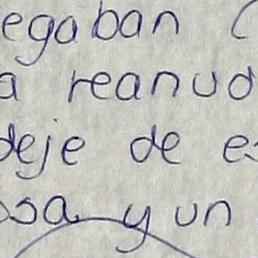 egaban (
a reanud
deje de es
osa y un